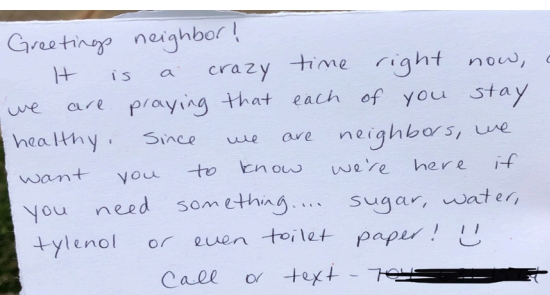 Greetings neighbor!
It is a crazy time right now,
we are praying that each of you stay
healthy. Since we are neighbors, we
want you to know we're here if
you need something.... sugar, water,
tylenol or even toilet paper! :)
Call or text -